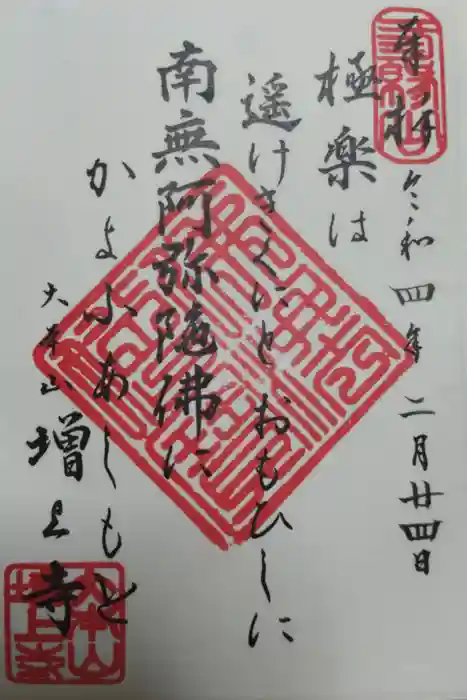 奉拝 令和四年二月廿四日
極楽は
遥けきくにと おもひしに
南無阿弥陀佛に
かよふあしもと
大本山 増上寺
大本山
増上寺